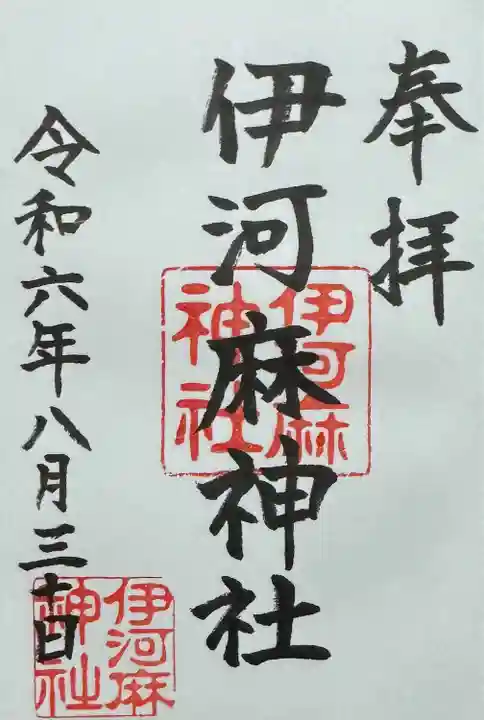 奉拝
伊河麻神社
伊河麻
神社
令和六年八月三十日
伊河麻
神社